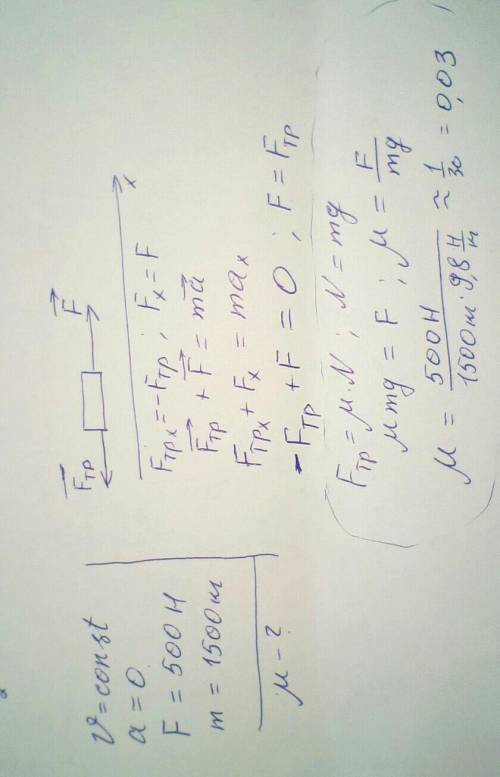 v = const
a = 0
F = 500 Н
m = 1500 кг
μ - ?
F⃗тр F⃗
x
Fтрx = -Fтр ; Fx = F
F⃗тр + F⃗ = ma⃗
Fтрx + Fx = max
-Fтр + F = 0 ; F = Fтр
Fтр = μ·N ; N = mg
μmg = F ; μ = F/mg
μ = 500 Н / 1500 кг · 9,8 Н/кг ≈ 1/30 = 0,03